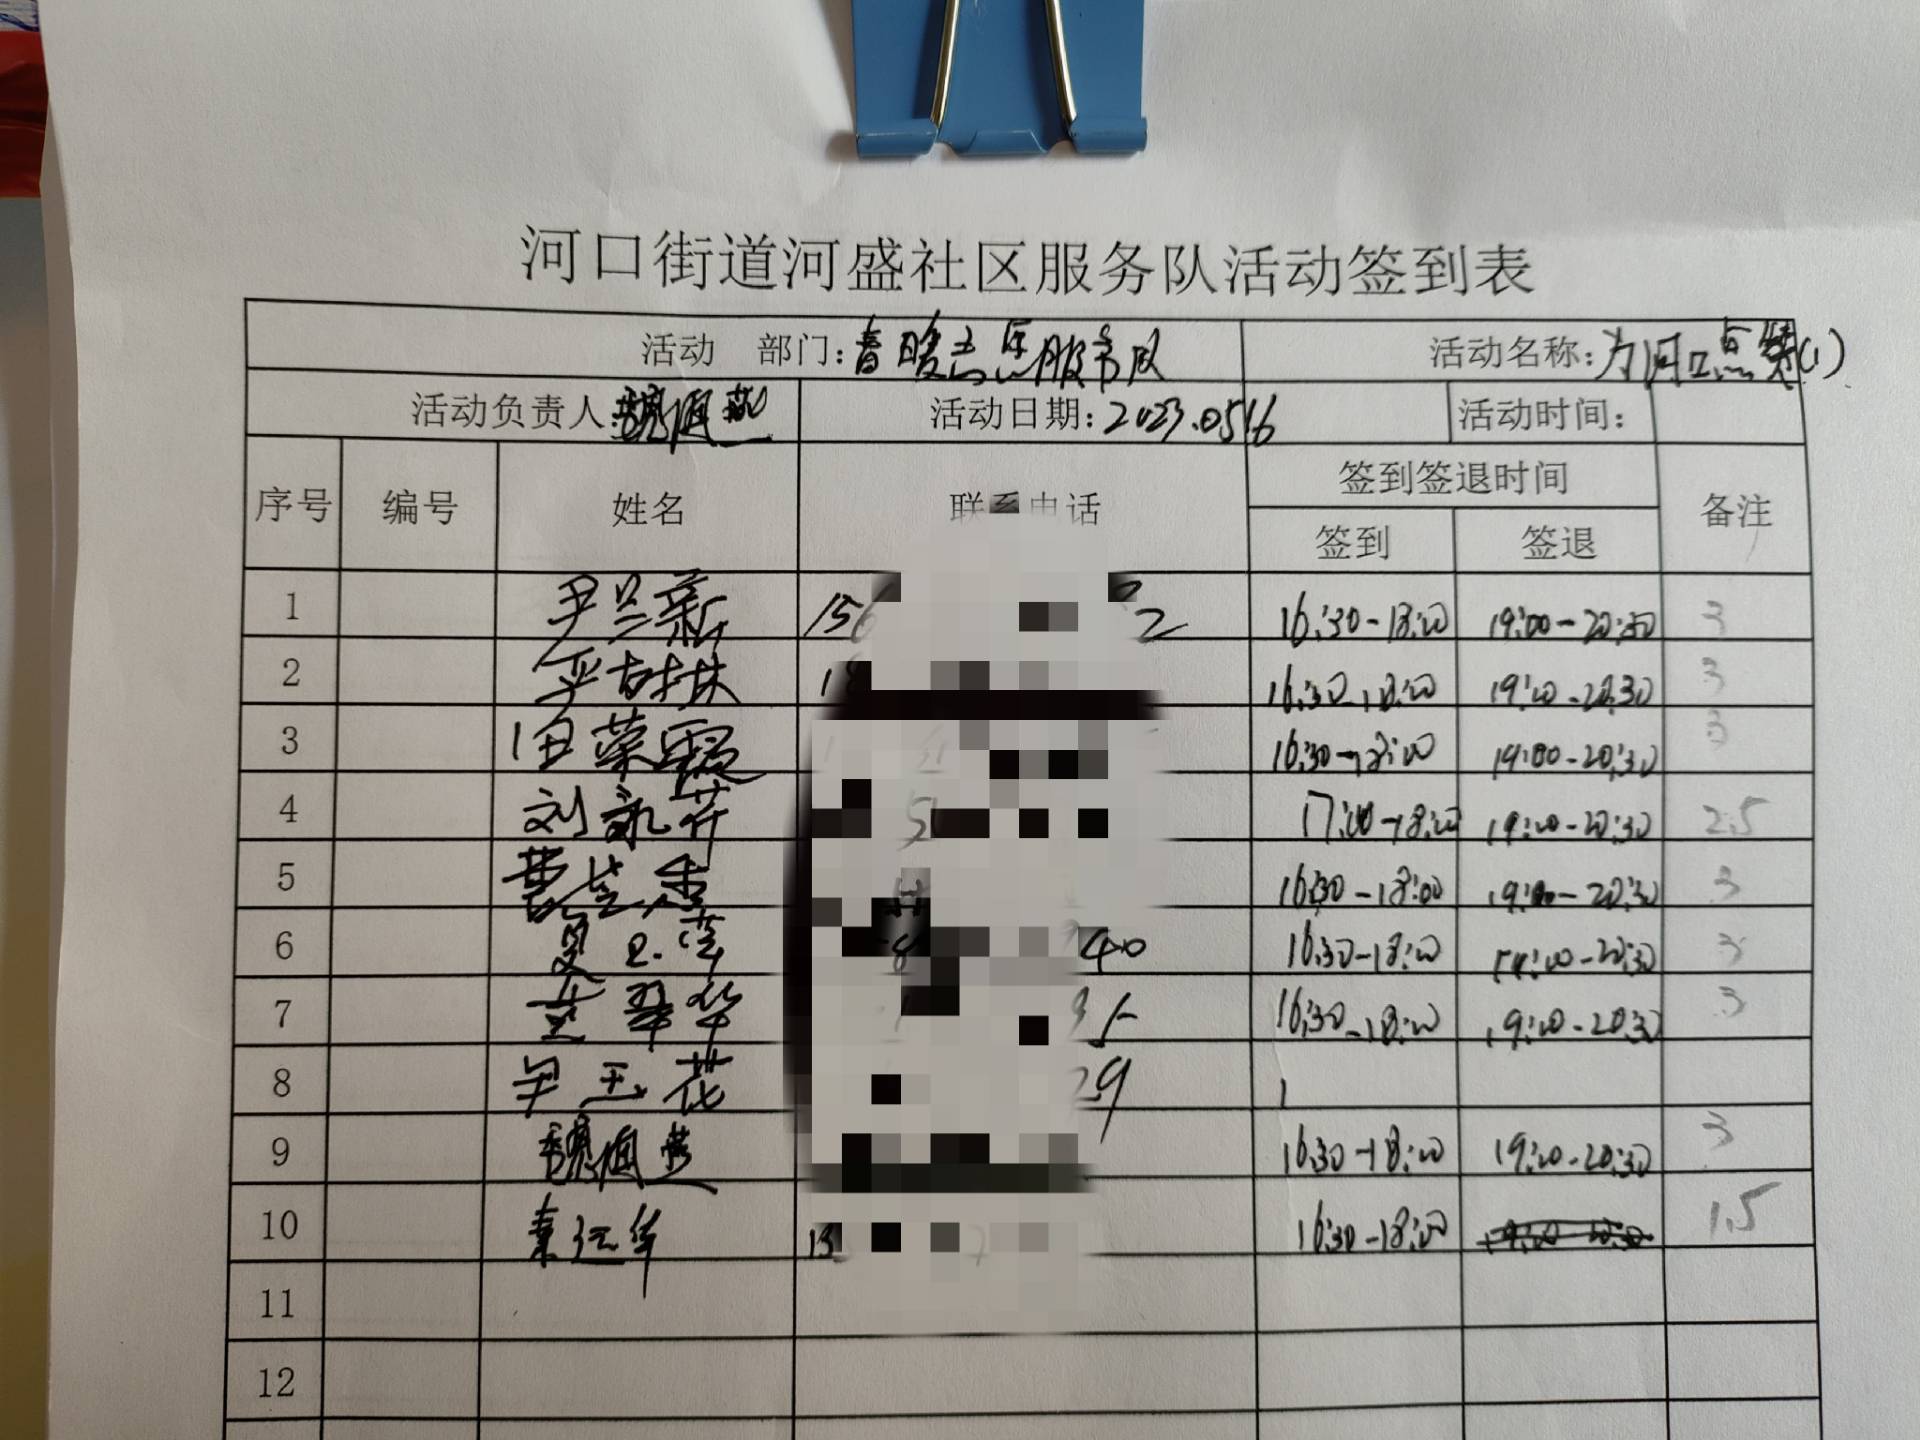 河口街道河盛社区服务队活动签到表
活动 部门：春暖志愿服务队 活动名称：为河口点赞(1)
活动负责人： 活动日期：2023.0516 活动时间：
序号 编号 姓名 联系电话 签到签退时间 备注
签到 签退
1 尹兰新 156 2 16:30-18:00 19:00-20:30 3
2 18 16:30-18:00 19:00-20:30 3
3 田荣霞 16:30-18:00 19:00-20:30 3
4 刘 5 17:00-18:00 19:00-20:30 2.5
5 16:30-18:00 19:00-20:30 3
6 8 40 16:30-18:00 19:00-20:30 3
7 翠华 16:30-18:00 19:00-20:30 3
8 玉花 29
9 16:30-18:00 19:00-20:30 3
10 13 7 16:30-18:00 1.5
11
12